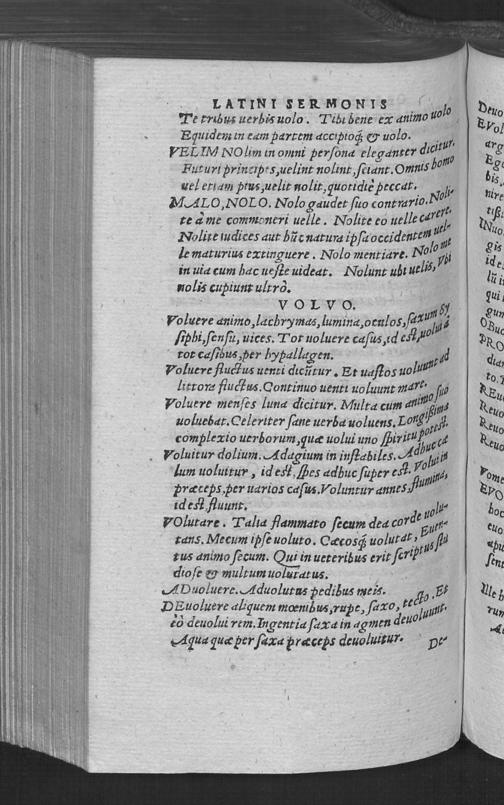 LATINI SERMONIS
Te tribus uerbis uolo. Tibi bene ex animo uolo
Equidem in eam partem accipioq́; & uolo.
VELIM NOlim in omni persona eleganter dicitur.
Futuri principes, uelint nolint, sciant. Omnis homo
uel etiam pius, uelit nolit, quotidiè peccat.
MALO, NOLO. Nolo gaudet suo contrario. Noli-
te à me commoneri uelle. Nolite eo uelle carere.
Nolite iudices aut hũc natura ipsa occidentem uel-
le maturius extinguere. Nolo mentiare. Nolo me
in uia cum hac ueste uideat. Nolunt ubi uelis, Vbi
nolis cupiunt ultrò.
VOLVO.
Voluere animo, lachrymas, lumina, oculos, saxum Sy
siphi, sensu, uices. Tot uoluere casus, id est, uolui à
tot casibus, per hypallagen.
Voluere fluctus uenti dicũtur. Et uastos uoluunt ad
littora fluctus. Continuo uenti uoluunt mare.
Voluere menses luna dicitur. Multa cum animo suo
uoluebat. Celeriter sane uerba uoluens. Longißima
complexio uerborum, quæ uolui uno spiritu potest.
Voluitur dolium. Adagium in instabiles. Adhuc cæ
lum uoluitur, id est, spes adhuc super est. Volui in
præceps, per uarios casus. Voluntur amnes, flumina,
id est, fluunt.
VOlutare. Talia flammato secum dea corde uolu-
tans. Mecum ipse uoluto. Cæcosq́; uolutat, Euen-
tus animo secum. Qui in ueteribus erit scriptus stu
diose & multum uolutatus.
ADuoluere. Aduolutus pedibus meis.
DEuoluere aliquem mœnibus, rupe, saxo, tecto. Et
eò deuolui rem. Ingentia saxa in agmen deuoluunt.
Aqua quæ per saxa præceps deuoluitur.
De-